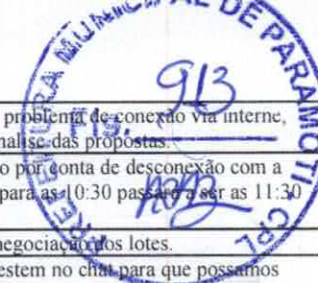 PREFEITURA MUNICIPAL DE PARAMOTI - CPL
913
Fls.
problema de conexão via interne,
nalise das propostas.
o por conta de desconexão com a
para as 10:30 passará a ser as 11:30
negociação dos lotes.
estem no chat para que possamos